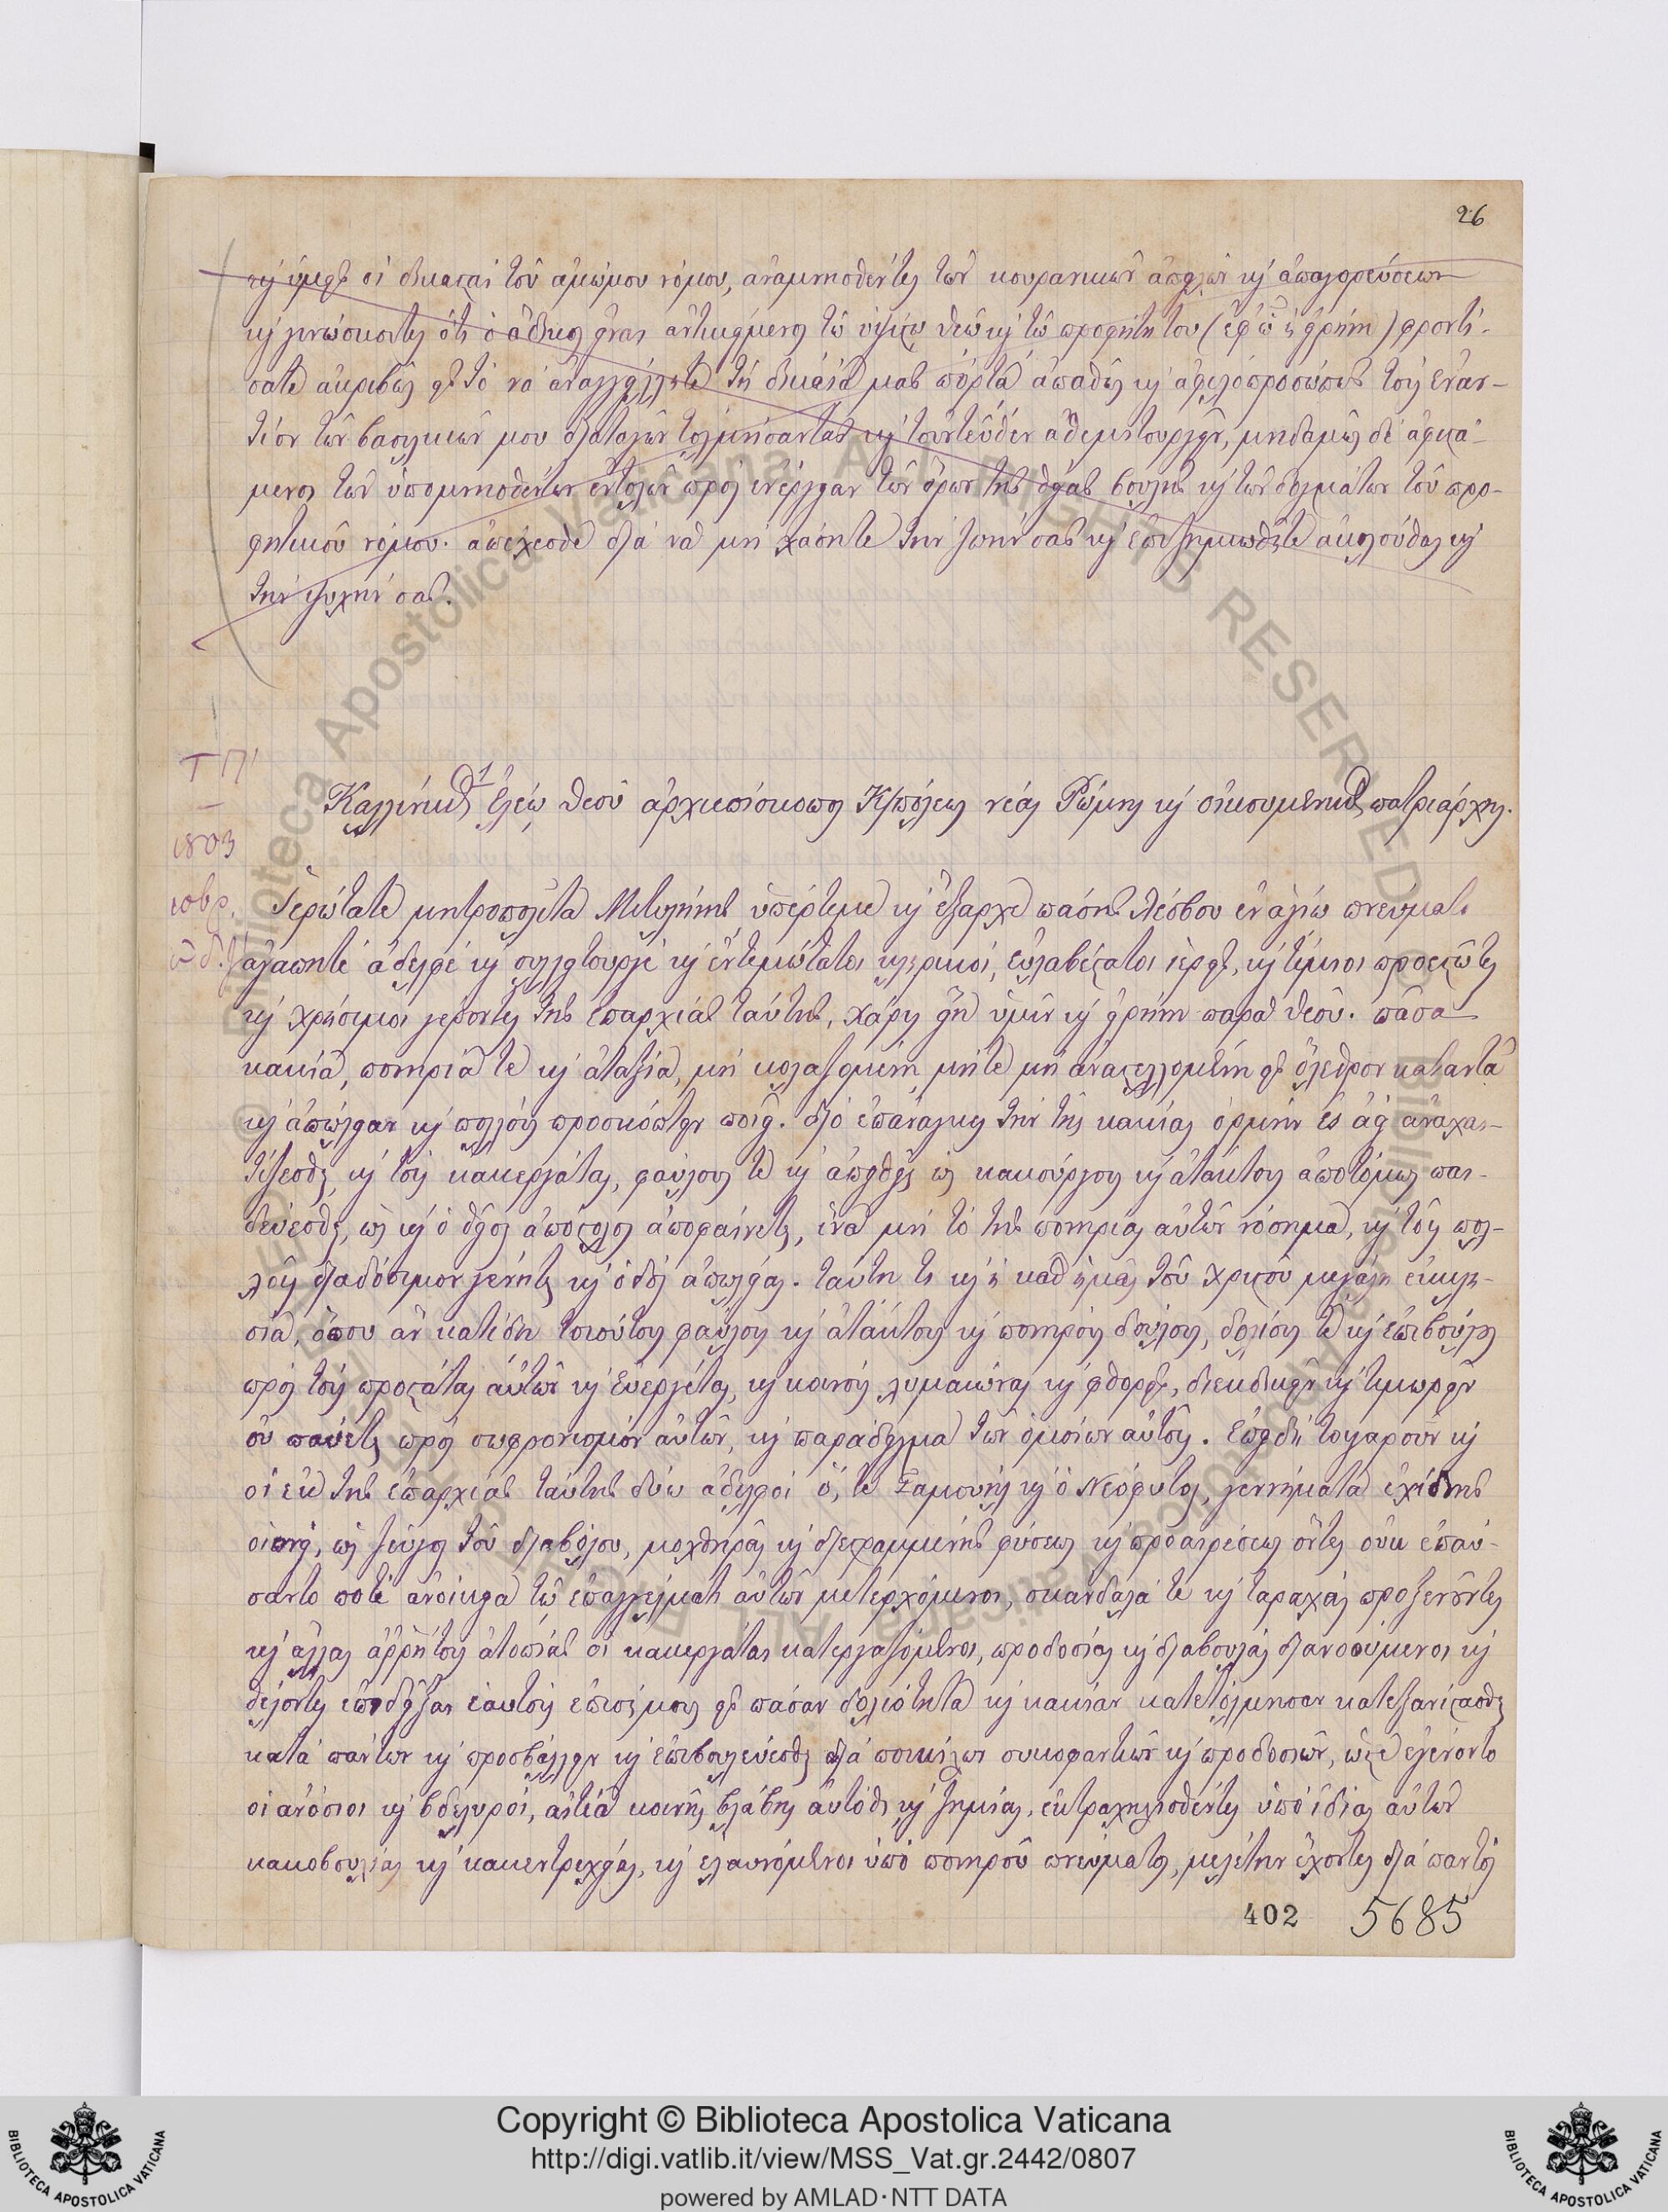 26
κ ὑμεῖς οἱ δικασταὶ τοῦ ἀμώμου νόμου, ἀναμνησθέντες τῶν κουρανικῶν ἀπειλῶν κ ἀπαγορεύσεων
κ γινώσκοντες ὅτι ὁ ἄδικος εἶναι ἀντικείμενος τῷ ὑψίστῳ θεῷ κ τῷ προφήτῃ του (ἐφ' ᾧ ἡ εἰρήνη) φροντί-
σατε ἀκριβῶς εἰς τὸ νὰ ἀναγγείλητε τῇ δικαίᾳ μας πόρτᾳ ἀπαθῶς κ ἀφιλοπροσώπως τοὺς ἐναν-
τίον τῶν βασιλικῶν μου διαταγῶν τολμήσαντας κ τοὐντεῦθεν ἀθεμιτουργεῖν, μηδαμῶς δὲ ἀφιστά-
μενοι τῶν ὑπομνησθέντων ἐντολῶν πρὸς ἐνέργειαν τῶν ὅρων τῆς θείας βουλῆς κ τῶν δογμάτων τοῦ προ-
φητικοῦ νόμου. ἀπέχεσθε διὰ νὰ μὴ χάσητε τὴν ζωήν σας κ ἐπιζημιωθῆτε ἀκολούθως κ
τὴν ψυχήν σας.
Καλλίνικος 1 ἐλέῳ θεοῦ ἀρχιεπίσκοπος Κ/πόλεως νέας Ρώμης κ οἰκουμενικὸς πατριάρχης.
1803
Ἱερώτατε μητροπολῖτα Μιτυλήνης ὑπέρτιμε κ ἔξαρχε πάσης Λέσβου ἐν ἁγίῳ πνεύματι
ἀγαπητὲ ἀδελφὲ κ συλλειτουργὲ κ ἐντιμότατοι κληρικοί, εὐλαβέστατοι ἱερεῖς, κ τίμιοι προεστῶτες
κ χρήσιμοι γέροντες τῆς ἐπαρχίας ταύτης, χάρις εἴη ὑμῖν κ εἰρήνη παρὰ θεοῦ. πᾶσα
κακία, πονηρία τε κ ἀταξία, μὴ κολαζομένη, μήτε μὴ ἀναστελλομένη εἰς ὄλεθρον καταντᾷ
κ ἀπώλειαν κ πολλοὺς προσκόπτειν ποιεῖ. διὸ ἐπάναγκες τὴν τῆς κακίας ὁρμὴν ἐς ἀεὶ ἀναχαι-
τίζεσθαι, κ τοὺς κακεργάτας, φαύλους τε κ ἀπειθεῖς ὡς κακούργους κ ἀτάκτους ἀποτόμως παι-
δεύεσθαι, ὡς κ ὁ θεῖος ἀπόστολος ἀποφαίνεται, ἵνα μὴ τὸ τῆς πονηρίας αὐτῶν νόσημα, κ τοῖς πολ-
λοῖς διαδόσιμον γένηται κ ὁδὸς ἀπωλείας. ταύτῃ τι κ ἡ καθ' ἡμᾶς τοῦ Χριστοῦ μεγάλη ἐκκλη-
σία, ὅπου ἂν κατίδῃ τοιούτους φαύλους κ ἀτάκτους κ πονηροὺς δούλους, δολίους τε κ ἐπιβούλους
πρὸς τοὺς προστάτας αὐτῶν κ εὐεργέτας, κ κοινοὺς λυμεῶνας κ φθορεῖς, διεκδικεῖν κ τιμωρεῖν
οὐ παύεται πρὸς σωφρονισμὸν αὐτῶν, κ παράδειγμα τῶν ὁμοίων αὐτοῖς. Ἐπειδὴ τοιγαροῦν κ
οἱ ἐκ τῆς ἐπαρχίας ταύτης δύω ἀδελφοὶ ὅ,τε Σαμουὴλ κ ὁ Νεόφυτος, γεννήματα ἐχίδνης
οἱονεί, ὡς ζεῦγος τοῦ διαβόλου, μοχθηρᾶς κ διεστραμμένης φύσεως κ προαιρέσεως ὄντες οὐκ ἐπαύ-
σαντο ποτὲ ἀνοίκεια τῷ ἐπαγγέλματι αὐτῶν μετερχόμενοι, σκάνδαλά τε κ ταραχὰς προξενοῦντες
κ ἄλλας ἀῤῥήτους ἀτοπίας οἱ κακεργάται κατεργαζόμενοι, προδοσίας κ διαβουλὰς διανοούμενοι κ
θέλοντες ἐπιδεῖξαι ἑαυτοὺς ἐπισήμους εἰς πᾶσαν δολιότητα κ κακίαν κατετόλμησαν κατεξανίστασθαι
κατὰ πάντων κ προσβάλλειν κ ἐπιβουλεύεσθαι διὰ ποικίλων συκοφαντιῶν κ προδοσιῶν, ὥστε ἐγένοντο
οἱ ἀνόσιοι κ βδελυροί, αἰτία κοινῆς βλάβης αὐτόθι κ ζημίας, ἐκτραχηλισθέντες ὑπὸ ἰδίας αὐτῶν
κακοβουλίας κ κακεντρεχείας, κ ἐλαυνόμενοι ὑπὸ πονηροῦ πνεύματος, μελέτην ἔχοντες διὰ παντὸς
402 5685
Copyright © Biblioteca Apostolica Vaticana
http://digi.vatlib.it/view/MSS_Vat.gr.2442/0807
powered by AMLAD·NTT DATA
BIBLIOTECA APOSTOLICA VATICANA
BIBLIOTECA APOSTOLICA VATICANA